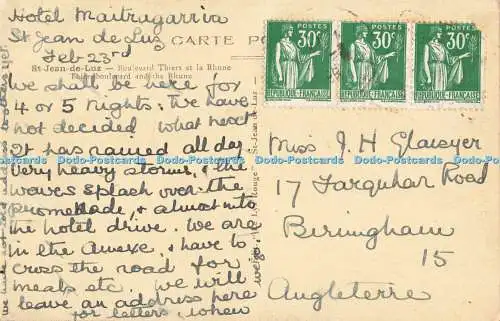 Hotel Maitragarria
St Jean de Luz
Feb 23rd
CARTE PO
St-Jean-de-Luz — Boulevard Thiers et la Rhune
Thiers boulevard and the Rhune
We shall be here for
4 or 5 nights: we have
not decided what next
It has rained all day
very heavy storms, & the
waves splash over the
promenade, & almost into
the hotel drive. We are
in the Annexe, & have to
cross the road for
meals etc. We will
leave an address here
for letters, when
we go.
POSTES
30c
REPUBLIQUE-FRANÇAISE
POSTES
30c
REPUBLIQUE-FRANÇAISE
POSTES
30c
REPUBLIQUE-FRANÇAISE
Miss J. H Glaisyer
17 Farquhar Road
Birmingham
15
Angleterre
Dodo-Postcards Dodo-Postcards Dodo-Postcards Dodo-Postcards Dodo-Postcards